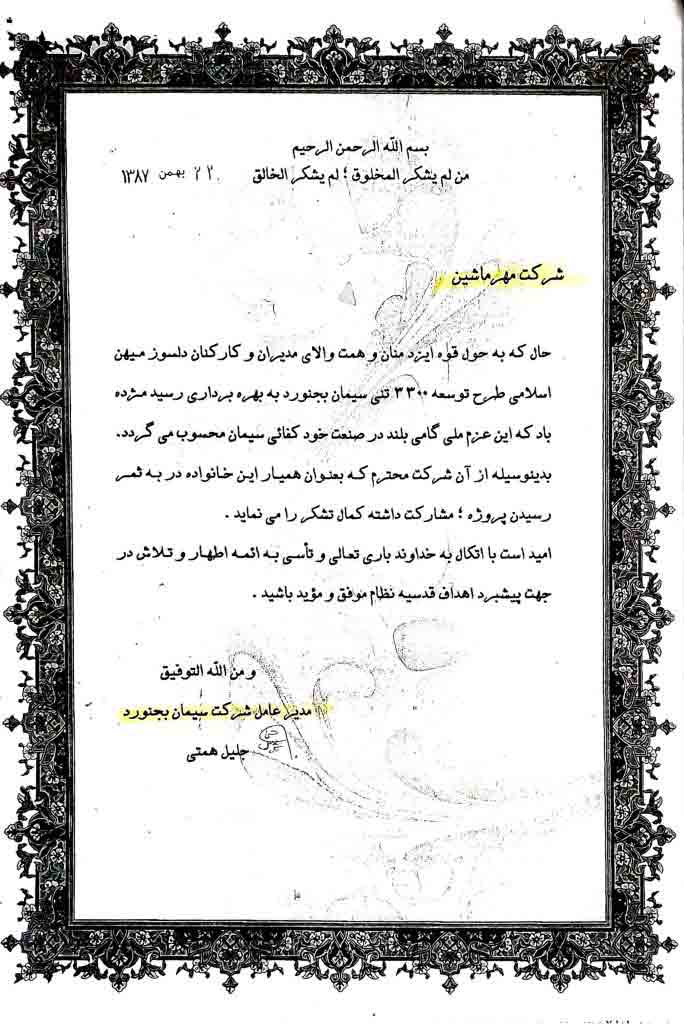 بسم الله الرحمن الرحیم
من لم یشکر المخلوق ؛ لم یشکر الخالق
۲۲ بهمن ۱۳۸۷
شرکت مهر ماشین
حال که به حول قوه ایزد منان و همت والای مدیران و کارکنان دلسوز میهن
اسلامی طرح توسعه ۳۳۰۰ تنی سیمان بجنورد به بهره برداری رسید مژده
باد که این عزم ملی گامی بلند در صنعت خود کفائی سیمان محسوب می گردد.
بدینوسیله از آن شرکت محترم که بعنوان همیار این خانواده در به ثمر
رسیدن پروژه ؛ مشارکت داشته کمال تشکر را می نماید .
امید است با اتکال به خداوند باری تعالی و تأسی به ائمه اطهار و تلاش در
جهت پیشبرد اهداف قدسیه نظام موفق و مؤید باشید .
و من الله التوفیق
مدیر عامل شرکت سیمان بجنورد
جلیل همتی